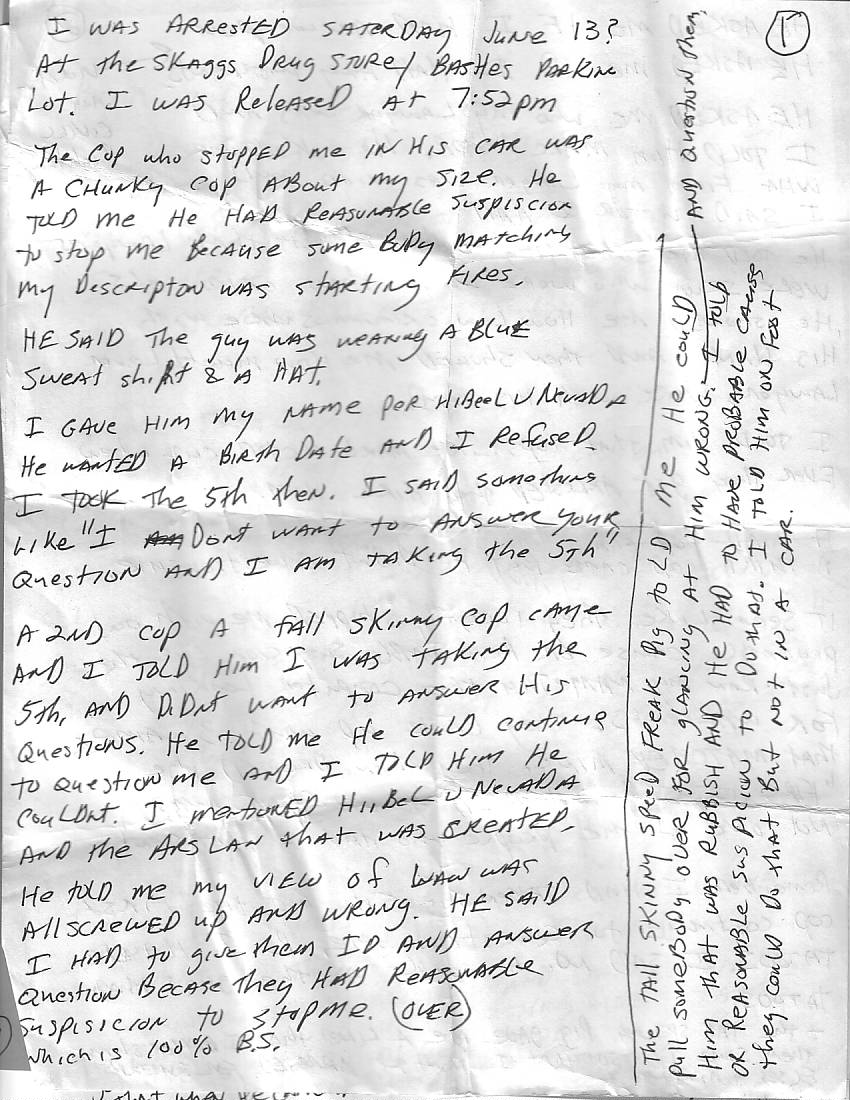 ①
I WAS ARRESTED SATERDAY JUNE 13?
At the SKAGGS DRUG STORE/BASHES PARKIN
LOT. I WAS RELEASED AT 7:52pm
The COP who STOPPED me IN HIS CAR WAS
A CHUNKY COP ABOUT my SIZE. He
TOLD me He HAD REASONABLE SUSPISCION
to stop me BECAUSE some BODY MATCHING
my DESCRIPTON WAS STARTING FIRES.
HE SAID THE guy WAS WEARING A BLUE
Sweat shift & A HAT.
I GAVE HIM my NAME per HIBEEL V NEVADA
He WANTED A BIRTH DATE AND I REFUSED.
I TOOK THE 5th then. I SAID something
LIKE "I DONT WANT to ANSWER YOUR
QUESTION AND I AM TAKING the 5Th"
A 2ND COP A TALL SKINNY COP CAME
AND I TOLD Him I WAS TAKING THE
5th, AND DIDNT WANT to ANSWER HIS
QUESTIONS. He TOLD me He COULD CONTINUE
TO QUESTION ME AND I TOLD HIM HE
COULDNT. I mentIONED HIIBEL V NEVADA
AND the ARSLAN that WAS CREATED.
He TOLD me my VIEW of LAW WAS
All SCREWED up AND WRONG. HE SAID
I HAD to give them ID AND ANSWER
QUESTION BECASE They HAD REASONABLE
SUSPISICION to STOP me. (OVER)
Which is 100% B.S.
The TALL SKINNY SPEED FREAK PIG TOLD ME He COULD
PULL SOMEBODY OVER FOR GLANCING AT HIM WRONG. AND QUESTION them.
I TOLD
HIM THAT WAS RUBBISH AND HE HAD TO HAVE PROBABLE CAUSE
OR REASONABLE SUSPICION TO DO that. I TOLD HIM ON FOOT
they COULD DO that BUT NOT IN A CAR.